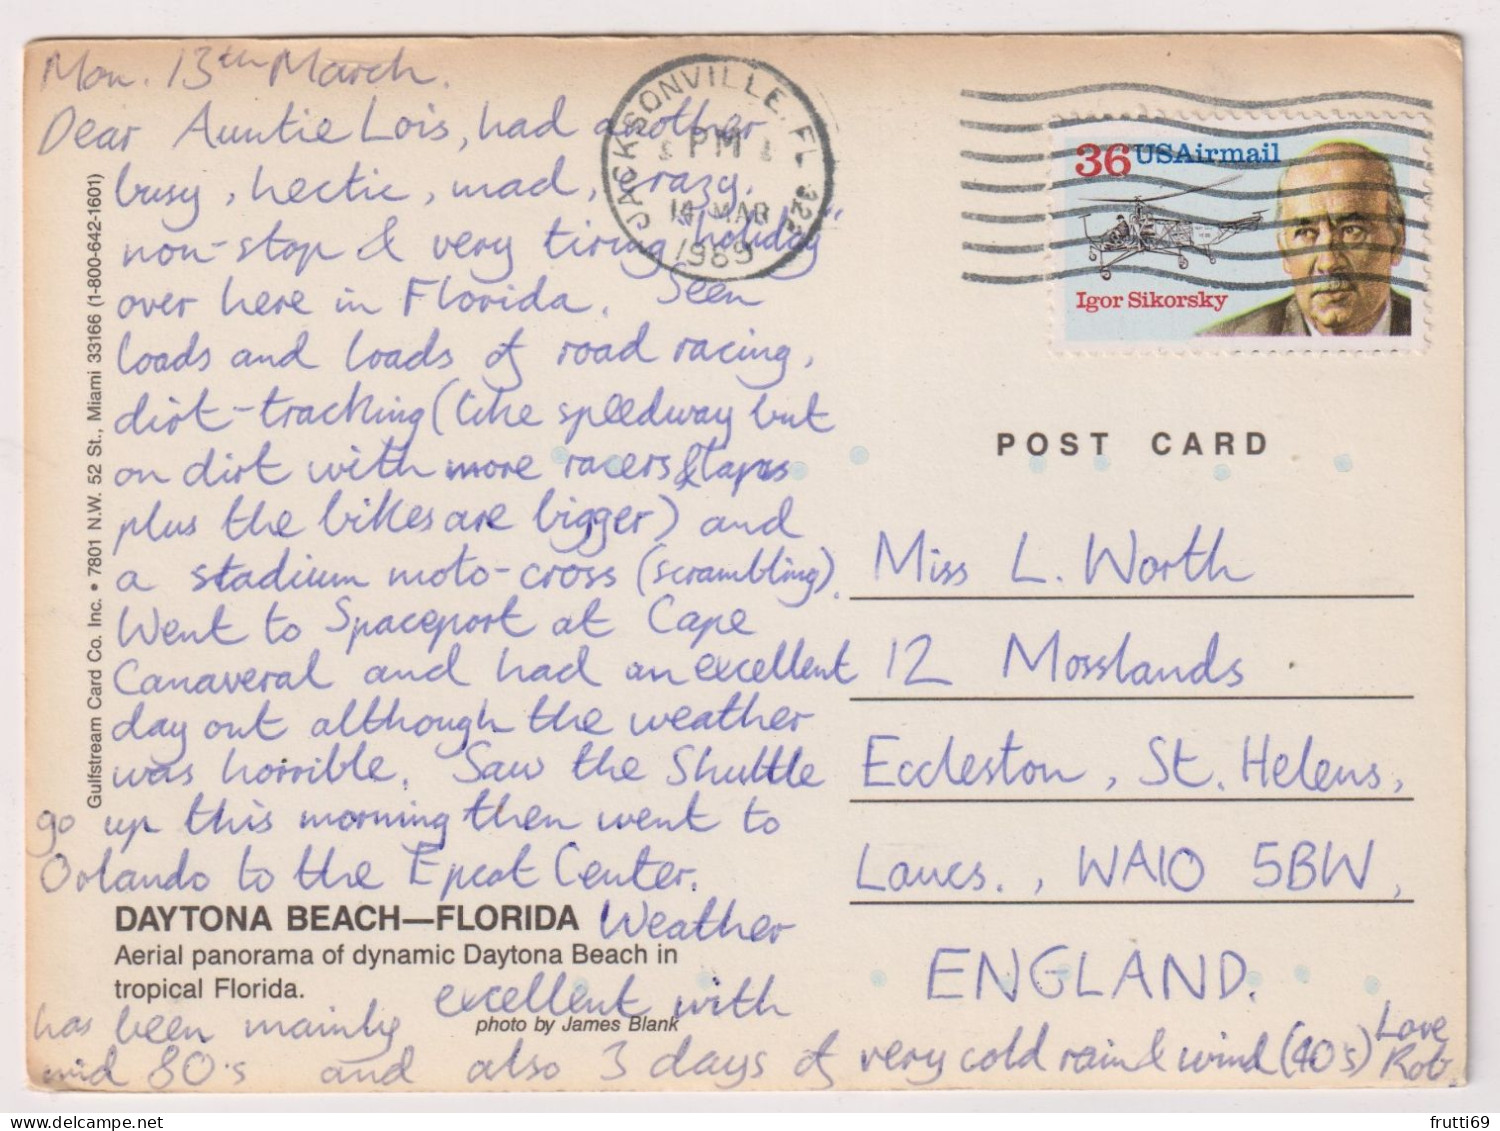 Mon. 13th March.
Dear Auntie Lois, had another
busy, hectic, mad, crazy,
non-stop & very tiring "holiday"
over here in Florida. Seen
loads and loads of road racing,
dirt-tracking (like speedway but
on dirt with more racers &
plus the bikes are bigger) and
a stadium moto-cross (scrambling).
Went to Spaceport at Cape
Canaveral and had an excellent
day out although the weather
was horrible. Saw the Shuttle
go up this morning then went to
Orlando to the Epcot Center.
Weather
has been mainly excellent with
mid 80's and also 3 days of very cold rain & wind (40's) Love
Rob.
DAYTONA BEACH—FLORIDA
Aerial panorama of dynamic Daytona Beach in
tropical Florida.
photo by James Blank
Gulfstream Card Co. Inc. • 7801 N.W. 52 St., Miami 33166 (1-800-642-1601)
JACKSONVILLE, FL
PM
14 MAR
1989
36 USAirmail
Igor Sikorsky
POST CARD
Miss L. Worth
12 Mosslands
Eccleston, St. Helens,
Lancs., WA10 5BW,
ENGLAND.
frutti69